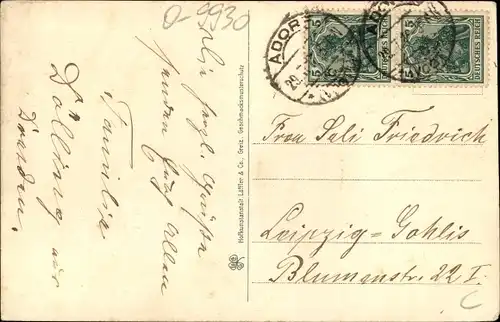 O-9930
ADORF
5 DEUTSCHES REICH 5
5 DEUTSCHES REICH 5
Die herzl. Grüße
senden Euch Allen
Familie
Dölling aus
Dresden.
Hofkunstanstalt Löffler & Co., Greiz. Geschmackmusterschutz
Frau Sali Friedrich
Leipzig=Gohlis
Blumenstr. 22 I.